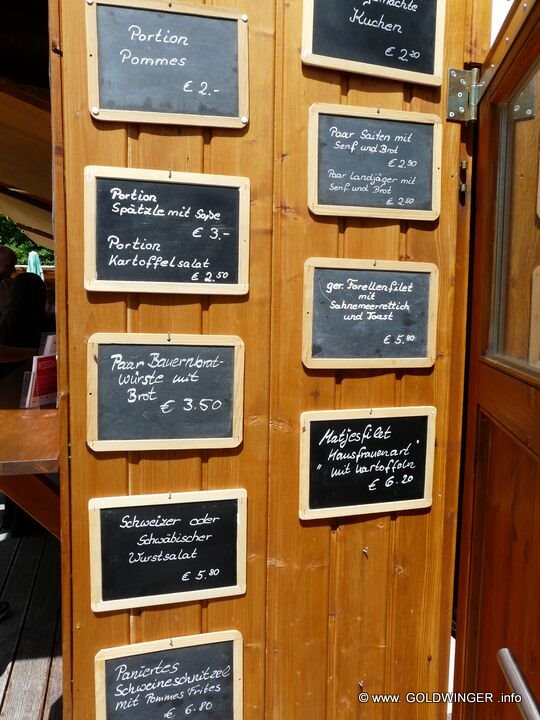 Portion
Pommes
€ 2.-
Portion
Spätzle mit Soße
€ 3.-
Portion
Kartoffelsalat
€ 2.50
Paar Bauernbrat-
würste mit
Brot
€ 3.50
Schweizer oder
Schwäbischer
Wurstsalat
€ 5.80
Paniertes
Schweineschnitzel
mit Pommes Frites
€ 6.80
Kuchen
€ 2.20
Paar Saiten mit
Senf und Brot
€ 2.90
Paar Landjäger mit
Senf und Brot
€ 2.50
ger. Forellenfilet
mit
Sahnemeerrettich
und Toast
€ 5.80
Matjesfilet
"Hausfrauenart"
mit Kartoffeln
€ 6.20
© www. GOLDWINGER .info